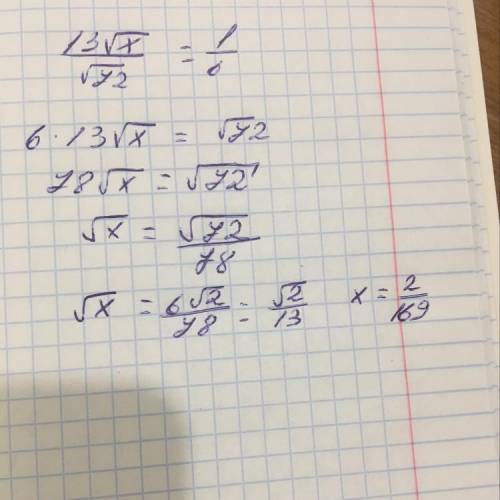 13√x / √72 = 1/6
6 · 13√x = √72
78√x = √72
√x = √72 / 78
√x = 6√2 / 78 = √2 / 13 x = 2/169